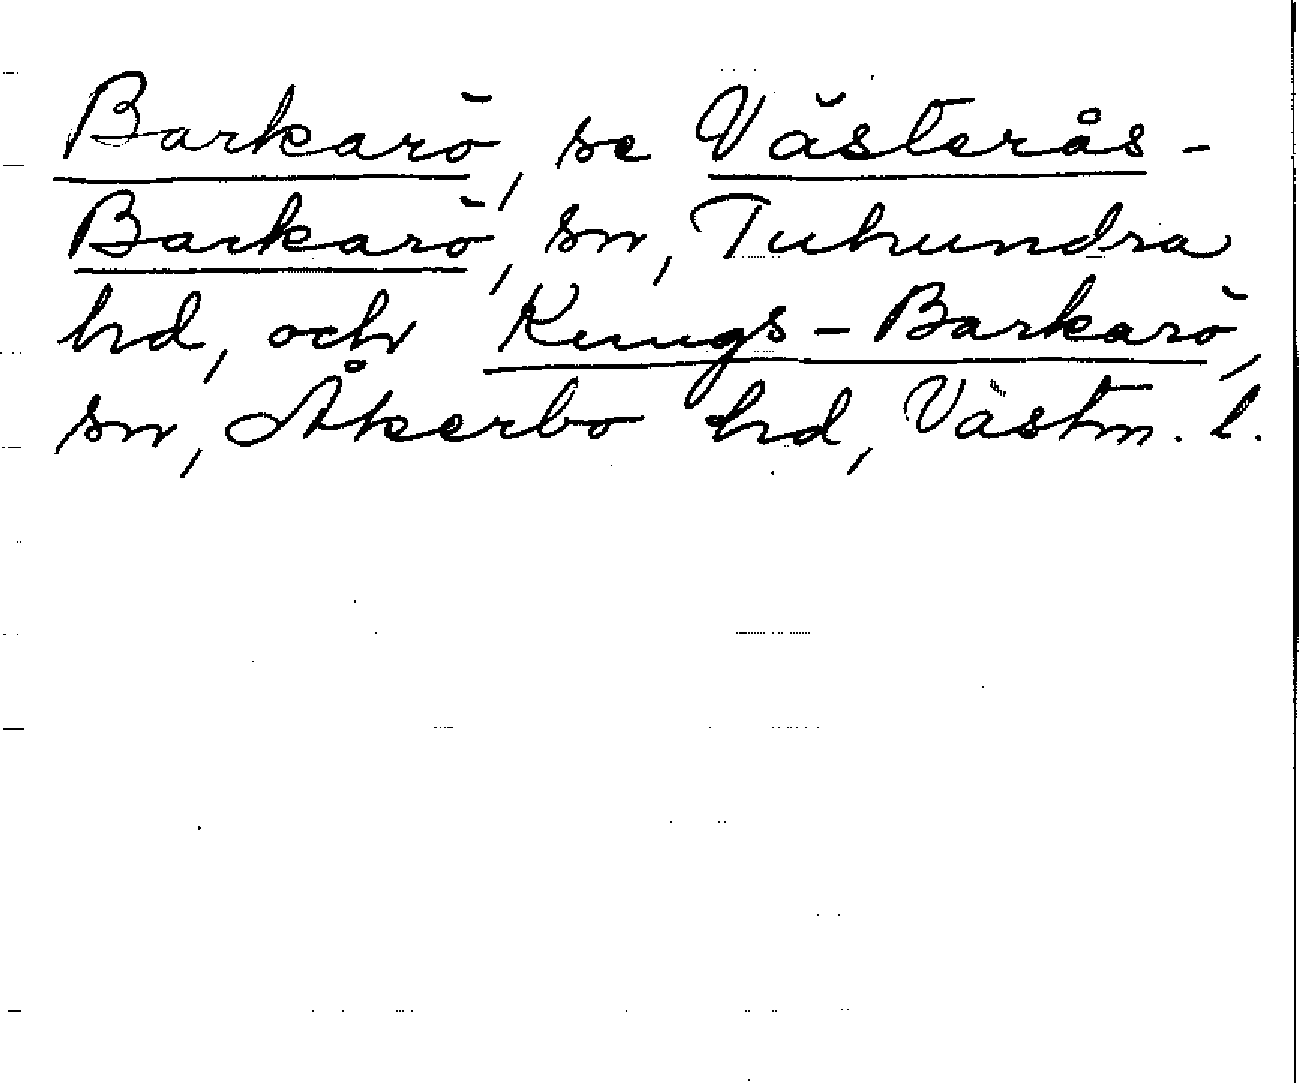 Barkarö, se Västerås-
Barkarö, sn, Tuhundra
hd, och Kungs-Barkarö,
sn, Åkerbo hd, Västm. l.